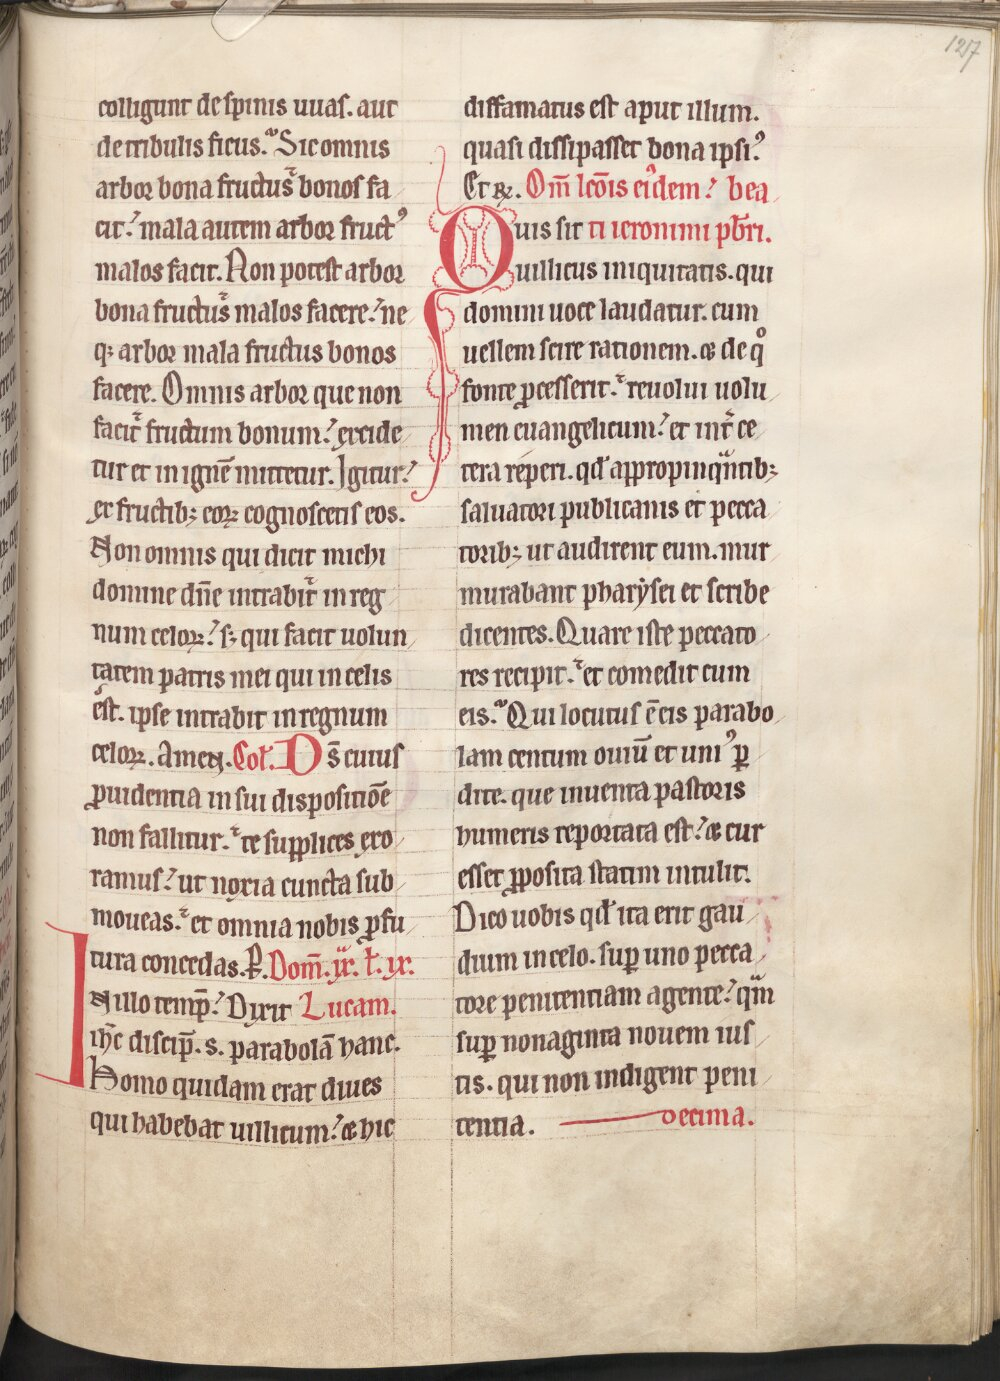 127
colligunt de spinis uuas. aut
de tribulis ficus. Sic omnis
arbor bona fructus bonos fa
cit. mala autem arbor fruct᾽
malos facit. Non potest arbor
bona fructus malos facere. ne
q; arbor mala fructus bonos
facere. Omnis arbor que non
facit fructum bonum. excide
tur et in ignē mittetur. Igitur
ex fructib; eoꝝ cognoscetis eos.
Non omnis qui dicit michi
domine dn̄e intrabit in reg
num celoꝝ. s; qui facit uolun
tatem patris mei qui in celis
est. ipse intrabit in regnum
celoꝝ. amen. Coł. Ds̄ cuius
ꝓuidentia in sui dispositiōe
non fallitur. te supplices exo
ramus. ut noxia cuncta sub
moueas. et omnia nobis ꝓfu
tura concedas. P̱. Dom̄. ix. ł. ix.
In illo temp̄. Dixit Lucam.
ihc̄ discip̄. s. parabolā hanc.
Homo quidam erat diues
qui habebat uillicum. ⁊ hic
diffamatus est aput illum.
quasi dissipasset bona ipsi᾽
Et rł. Om̄ leōis eiʼdem. bea
Quis sit ti ieronimi pb̄ri.
uillicus iniquitatis. qui
domini uoce laudatur. cum
uellem scire rationem. ⁊ de qͦ
fonte ꝓcesserit. reuolui uolu
men euangelicum. et int̄ ce
tera reperi. qđ appropinqͣntib;
saluatori publicanis et pecca
torib; ut audirent eum. mur
murabant pharysei et scribe
dicentes. Quare iste peccato
res recipit. et comedit cum
eis. Qui locutus ē eis parabo
lam centum ouiū et uni᾽ ꝑ
dite. que inuenta pastoris
humeris reportata est. ⁊ cur
esset ꝓposita statim intulit.
Dico uobis qđ ita erit gau
dium in celo. suꝑ uno pecca
tore penitentiam agente. qͣm
suꝑ nonaginta nouem ius
tis. qui non indigent peni
tentia. decima.